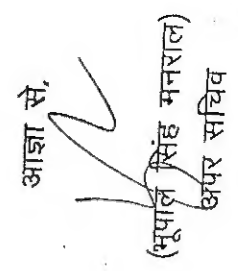 आज्ञा से,
(भूपाल सिंह मनराल)
अपर सचिव